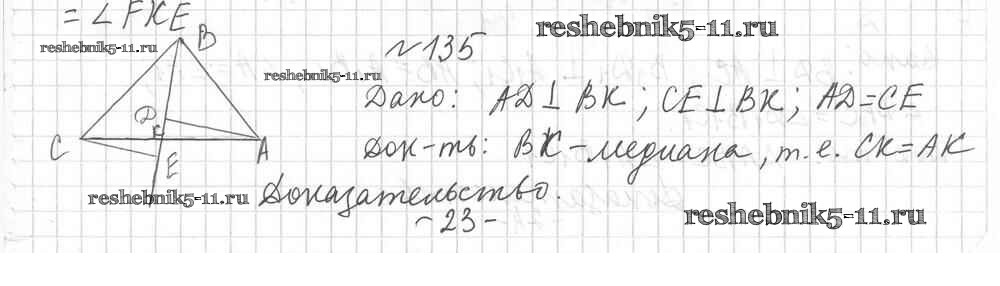 = ∠FKE
reshebnik5-11.ru
reshebnik5-11.ru
B
№135
reshebnik5-11.ru
Дано: AD⊥BK; CE⊥BK; AD=CE
D
K
C
A
E
Док-ть: BK-медиана, т.е. CK=AK
reshebnik5-11.ru
Доказательство.
-23-
reshebnik5-11.ru